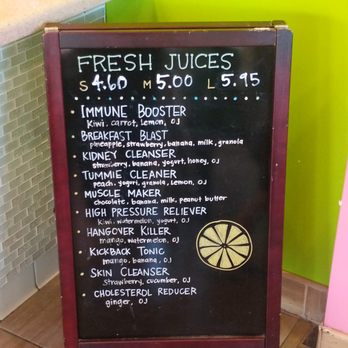 FRESH JUICES
S 4.60 M 5.00 L 5.95
IMMUNE BOOSTER
Kiwi, carrot, lemon, OJ
BREAKFAST BLAST
pineapple, strawberry, banana, milk, granola
KIDNEY CLEANSER
strawberry, banana, yogurt, honey, OJ
TUMMIE CLEANER
peach, yogurt, granola, lemon, OJ
MUSCLE MAKER
chocolate, banana, milk, peanut butter
HIGH PRESSURE RELIEVER
Kiwi, watermelon, yogurt, OJ
HANGOVER KILLER
mango, watermelon, OJ
KICKBACK TONIC
mango, banana, OJ
SKIN CLEANSER
Strawberry, cucumber, OJ
CHOLESTEROL REDUCER
ginger, OJ